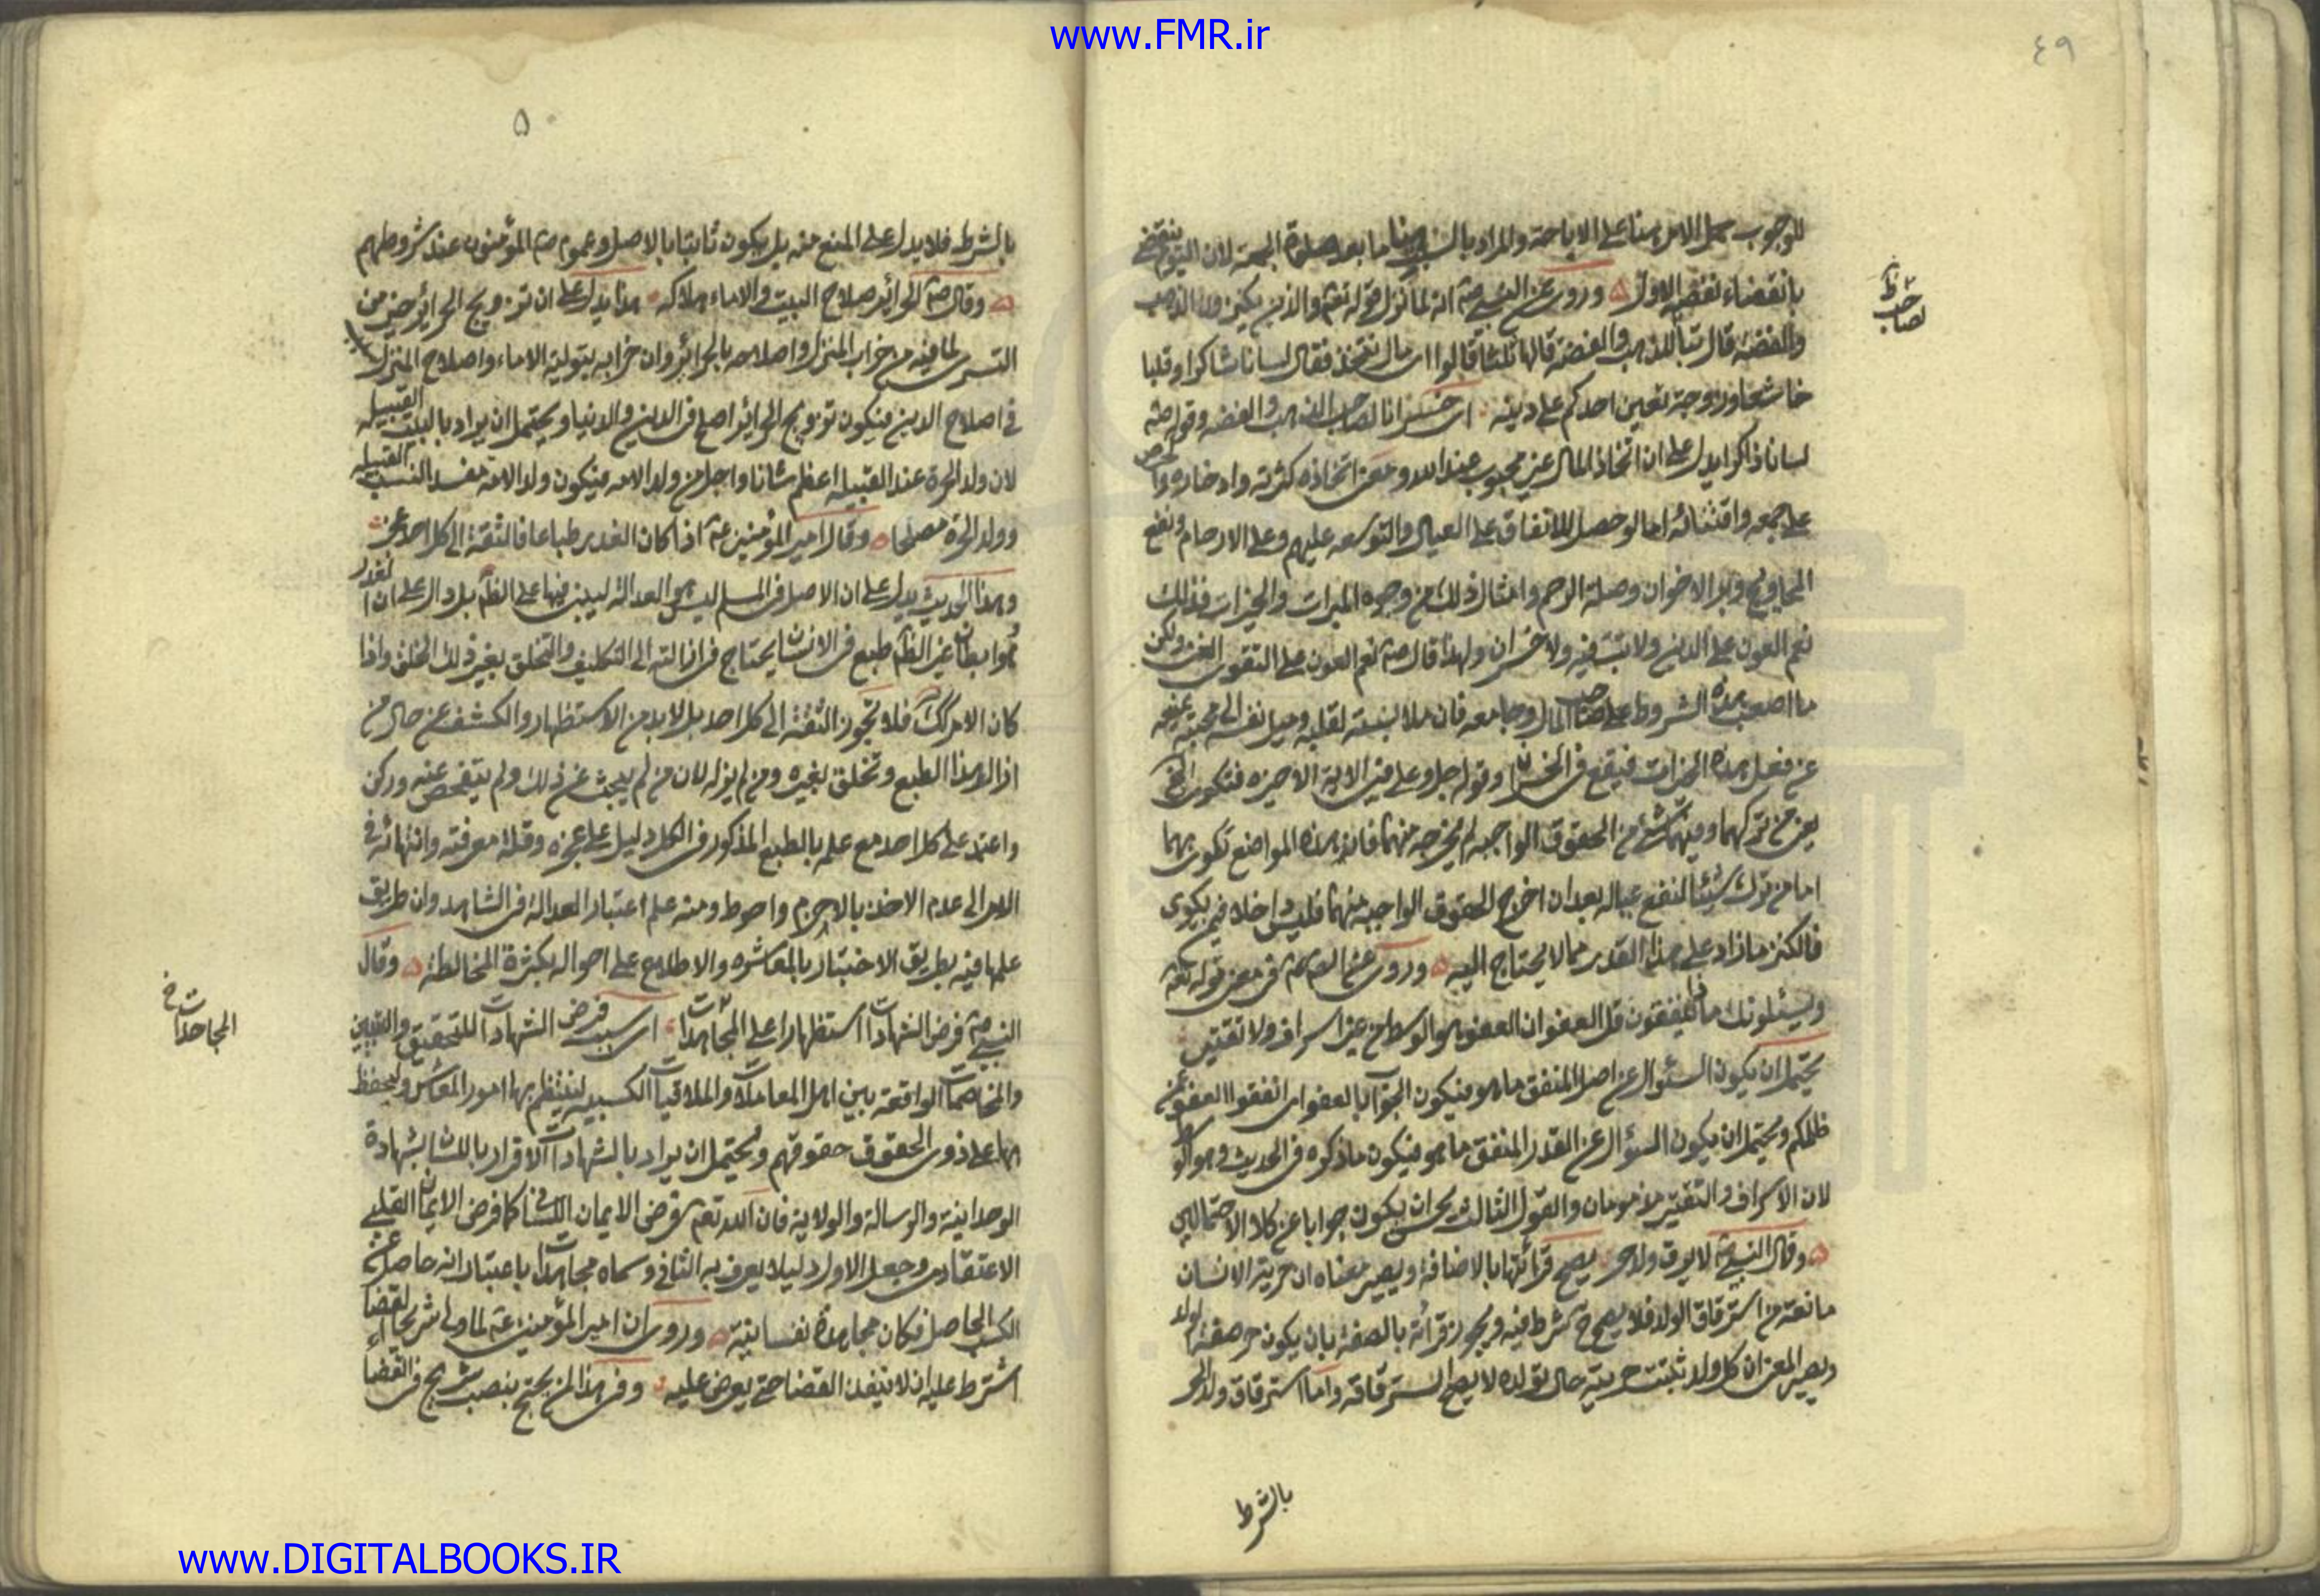 www.FMR.ir
٤٩
للوجوب حمل الامر هنا على الاباحة والمراد بالسبت هنا ما بعد صلوة الجمعة لان اليوم ينقضي
بانقضاء نصفه الاول ه وروى عن النبي ص انه لما نزل قوله تعم والذين يكنزون الذهب
والفضة قال تبا للذهب والفضة قالها ثلثا قالوا اى مال نتخذ فقال لسانا شاكرا وقلبا
خاشعا وزوجة تعين احدكم على دينه اى خسرانا لصاحب الذهب والفضه وقوله ص
لسانا ذاكرا يدل على ان اتخاذ المال غير محبوب عند الله ومعنى اتخاذه كثرته وادخاره والحرص
على جمعه واقتنائه اما لو حصل للانفاق على العيال والتوسعه عليهم وعلى الارحام ونفع
المحاويج وبر الاخوان وصلة الرحم وامثال ذلك من وجوه المبرات والخيرات فذلك
نعم العون على الدين ولا تب فيه ولا خسران ولهذا قال ص نعم العون على التقوى الغنى ولكن
ما اصعب هذه الشروط على صاحب المال وجامعه فان ملابسته لقلبه وميل نفسه الى محبته يمنعه
عن فعل هذه الخيرات فيقع في الخسران وقوله جل وعلى في الاية الاخيره فتكوى الخ
يعني من تركهما وفيهما شئ من الحقوق الواجبه لم يخرجه منهما فان هذه المواضع تكوى بهما
اما من ترك شيئا لنفع عياله بعد ان اخرج الحقوق الواجبه منهما فليس داخلا فيمن يكوى
فالكنز ما زاد على هذا القدر مما لا يحتاج اليه ه وروى عنهم في معنى قوله تعم
ويسئلونك ما ذا ينفقون قل العفو ان العفو هو الوسط من غير اسراف ولا تقتير
يحتمل ان يكون السئوال عن اصل المنفق ما هو فيكون الجواب بالعفو اى انفقوا العفو عمن
ظلمكم ويحتمل ان يكون السئوال عن القدر المنفق ما هو فيكون ما ذكره في الحديث وهو الوسط
لان الاسراف والتقتير مذمومان والقول الثالث يحسن ان يكون جوابا عن كلا الاحتمالين
ه وقال النبي ص لا يرق ولد حر يصح قرائتها بالاضافة ويصير معناه ان حرية الانسان
مانعة من استرقاق الولد فلا يصح شرط فيه ويجوز قرائة بالصفة بان يكون حر صفة لولد
ويصير المعنى ان كل ولد ثبتت حريته حال تولده لا يصح استرقاقه واما استرقاق ولد الحر
بالشرط
صاحب
٥٠
بالشرط فلا يدل على المنع منه بل يكون ثابتا بالاصل وعموم ص المؤمنون عند شروطهم
ه وقال ص الحرائر صلاح البيت والاماء هلاكه هذا يدل على ان تزويج الحرائر خير من
التسرى لما فيه من خراب المنزل واصلاحه بالحرائر وان خرابه بتولية الاماء واصلاح المنزل
في اصلاح الدين فيكون تزويج الحرائر اصلح في الدين والدنيا ويحتمل ان يراد بالبيت القبيله
لان ولد الحرة عند القبيله اعظم شانا واجل من ولد الامه فيكون ولد الامة مفسد النسب القبيله
وولد الحرة مصلحا ه وقال امير المؤمنين ع اذا كان الغدر طباعا فالثقة الى كل احد عجز
وهذا الحديث يدل على ان الاصل في المسلم ليس هو العدالة ليبنى فيها على الظاهر بل دال على ان الغدر
هو ابطان غير الظاهر طبع في الانسان يحتاج في ازالته الى التكليف والتخلق بغير ذلك الخلق واذا
كان الامر كك فلا تجوز الثقة الى كل احد بل لا بد من الاستظهار والكشف عن حال من
ازال هذا الطبع وتخلق بغيره ومن لم يزله لان من لم يبحث عن ذلك ولم يتفحص عنه وركن
واعتمد على كل احد مع علمه بالطبع المذكور في الكل دليل على عجزه وقلة معرفته وانتهائه في
الامر الى عدم الاخذ بالاحزم واحوط ومنه علم اعتبار العدالة في الشاهد وان طريق
علمها فيه بطريق الاختبار بالمعاشره والاطلاع على احواله بكثرة المخالطة ه وقال
النبي ص فرض الشهادات استظهارا على المجاهدات اى سبب فرض الشهادات للتحقيق والتبيين
والمخاصمات الواقعة بين اهل المعاملات والملاقيات الكسبيه لينتظم بها امور المعاش وليحفظ
بها على ذوى الحقوق حقوقهم ويحتمل ان يراد بالشهادات الاقرار باللسان بشهادة
الوحدانية والرسالة والولاية فان الله تعم فرض الايمان اللساني كما فرض الايمان القلبي
الاعتقادى وجعل الاول دليلا يعرف به الثاني وسماه مجاهدات باعتبار انه حاصل عن
الكسب الحاصل فكان مجاهدة نفسانية ه وروى ان امير المؤمنين ع لما ولى شريحا القضاء
اشترط عليه ان لا ينفذ القضا حتى يعرض عليه وفي هذا لمن يحتج بنصب شريح في القضا
المجاحدات خ
www.DIGITALBOOKS.IR